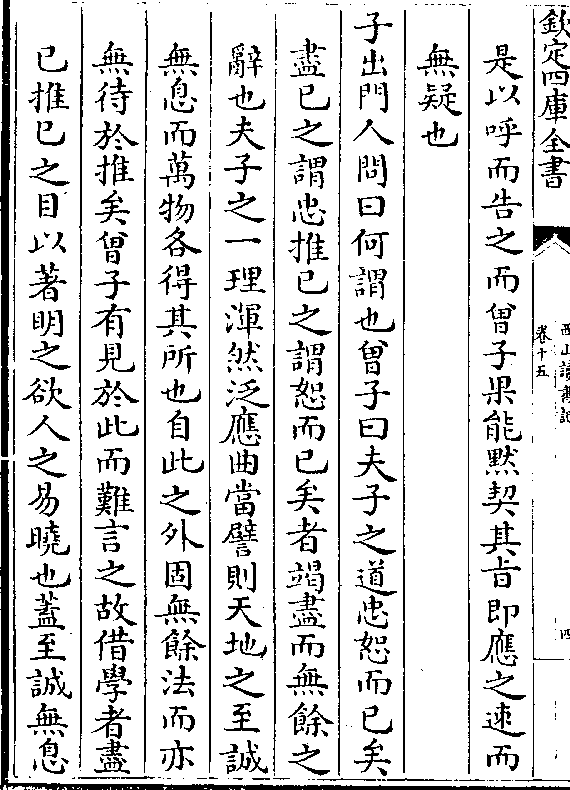 欽定四庫全書
西山讀書記
卷十五
四
是以呼而告之而曾子果能默契其㫖即應之速而
無疑也
子出門人問曰何謂也曾子曰夫子之道忠恕而已矣
盡已之謂忠推已之謂恕而已矣者竭盡而無餘之
辭也夫子之一理渾然泛應曲當譬則天地之至誠
無息而萬物各得其所也自此之外固無餘法而亦
無待於推矣曾子有見於此而難言之故借學者盡
已推已之目以著明之欲人之易曉也葢至誠無息